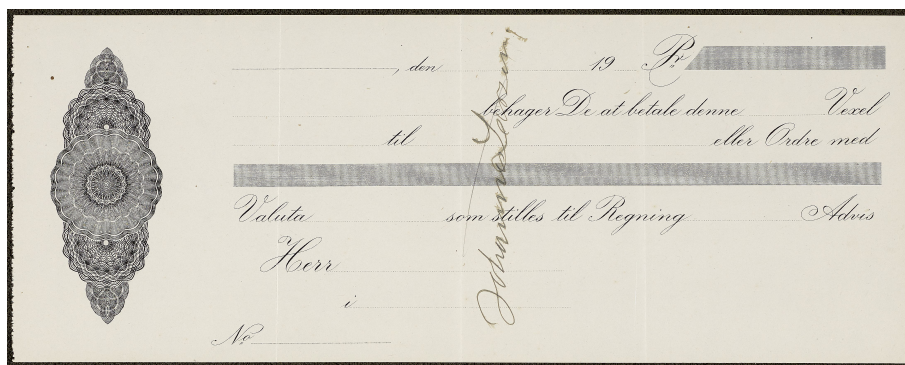 , den 19 Pr.
behager De at betale denne Vexel
til eller Ordre med
Valuta som stilles til Regning Advis
Herr
i
No.
Johannes